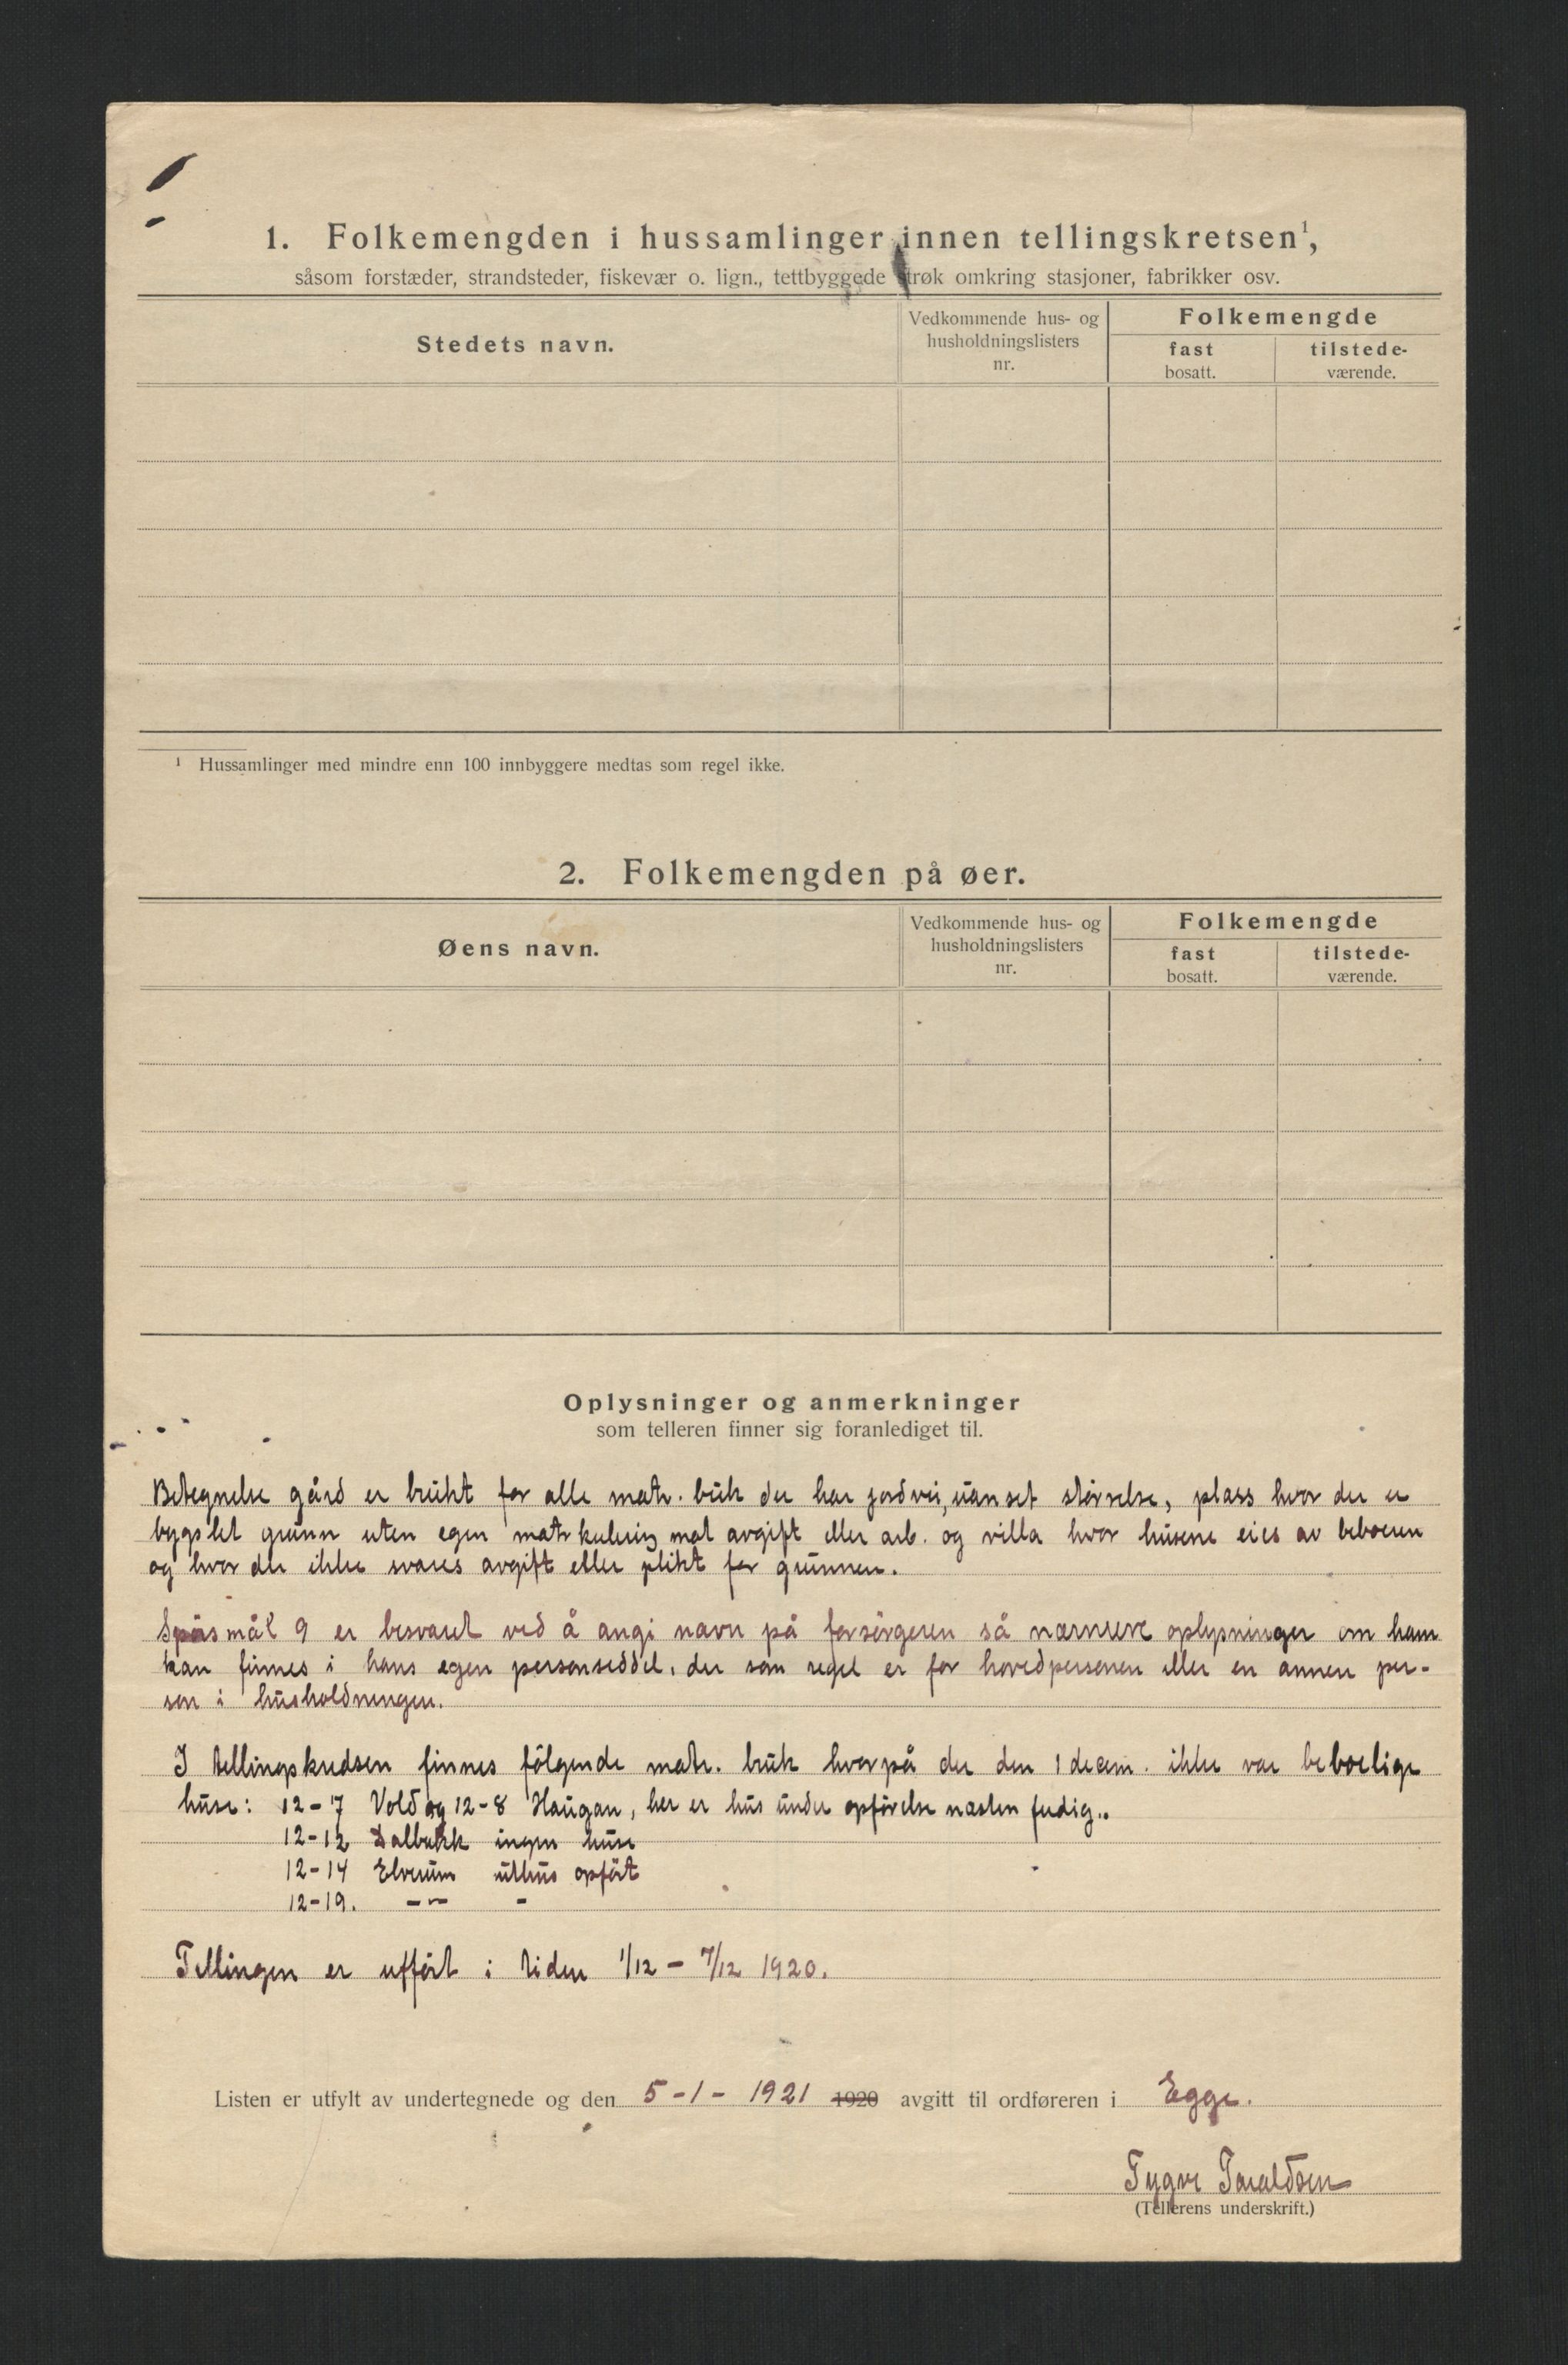 1. Folkemengden i hussamlinger innen tellingskretsen¹,
såsom forstæder, strandsteder, fiskevær o. lign., tettbyggede strøk omkring stasjoner, fabrikker osv.
Stedets navn.
Vedkommende hus- og
husholdningslisters
nr.
Folkemengde
fast
bosatt.
tilstede-
værende.
¹ Hussamlinger med mindre enn 100 innbyggere medtas som regel ikke.
2. Folkemengden på øer.
Øens navn.
Vedkommende hus- og
husholdningslisters
nr.
Folkemengde
fast
bosatt.
tilstede-
værende.
Oplysninger og anmerkninger
som telleren finner sig foranlediget til.
Betegnelse gård er brukt for alle matr. bruk der har jordvei, uanset størrelse, plass hvor der er
bygslet grunn uten egen matrkulering mot avgift eller arb. og villa hvor husene eies av beboeren
og hvor der ikke svares avgift eller plikt for grunnen.
Spørsmål 9 er besvaret ved å angi navn på forsørgeren så nærmere oplysninger om ham
kan finnes i hans egen personseddel, der som regel er for hovedpersonen eller en annen per-
son i husholdningen.
I tellingskredsen finnes følgende matr. bruk hvorpå der den 1 decem. ikke var beboelige
huse: 12-7 Vold og 12-8 Haugan, her er hus under opførelse næsten ferdig..
12-12 Dalbakk ingen huse
12-14 Elverum uthus opført
12-19. -"- -
Tellingen er utført i tiden 1/12 - 7/12 1920.
Listen er utfylt av undertegnede og den 5-1- 1921 1920 avgitt til ordføreren i Egge.
Trygve Taraldsen
(Tellerens underskrift.)